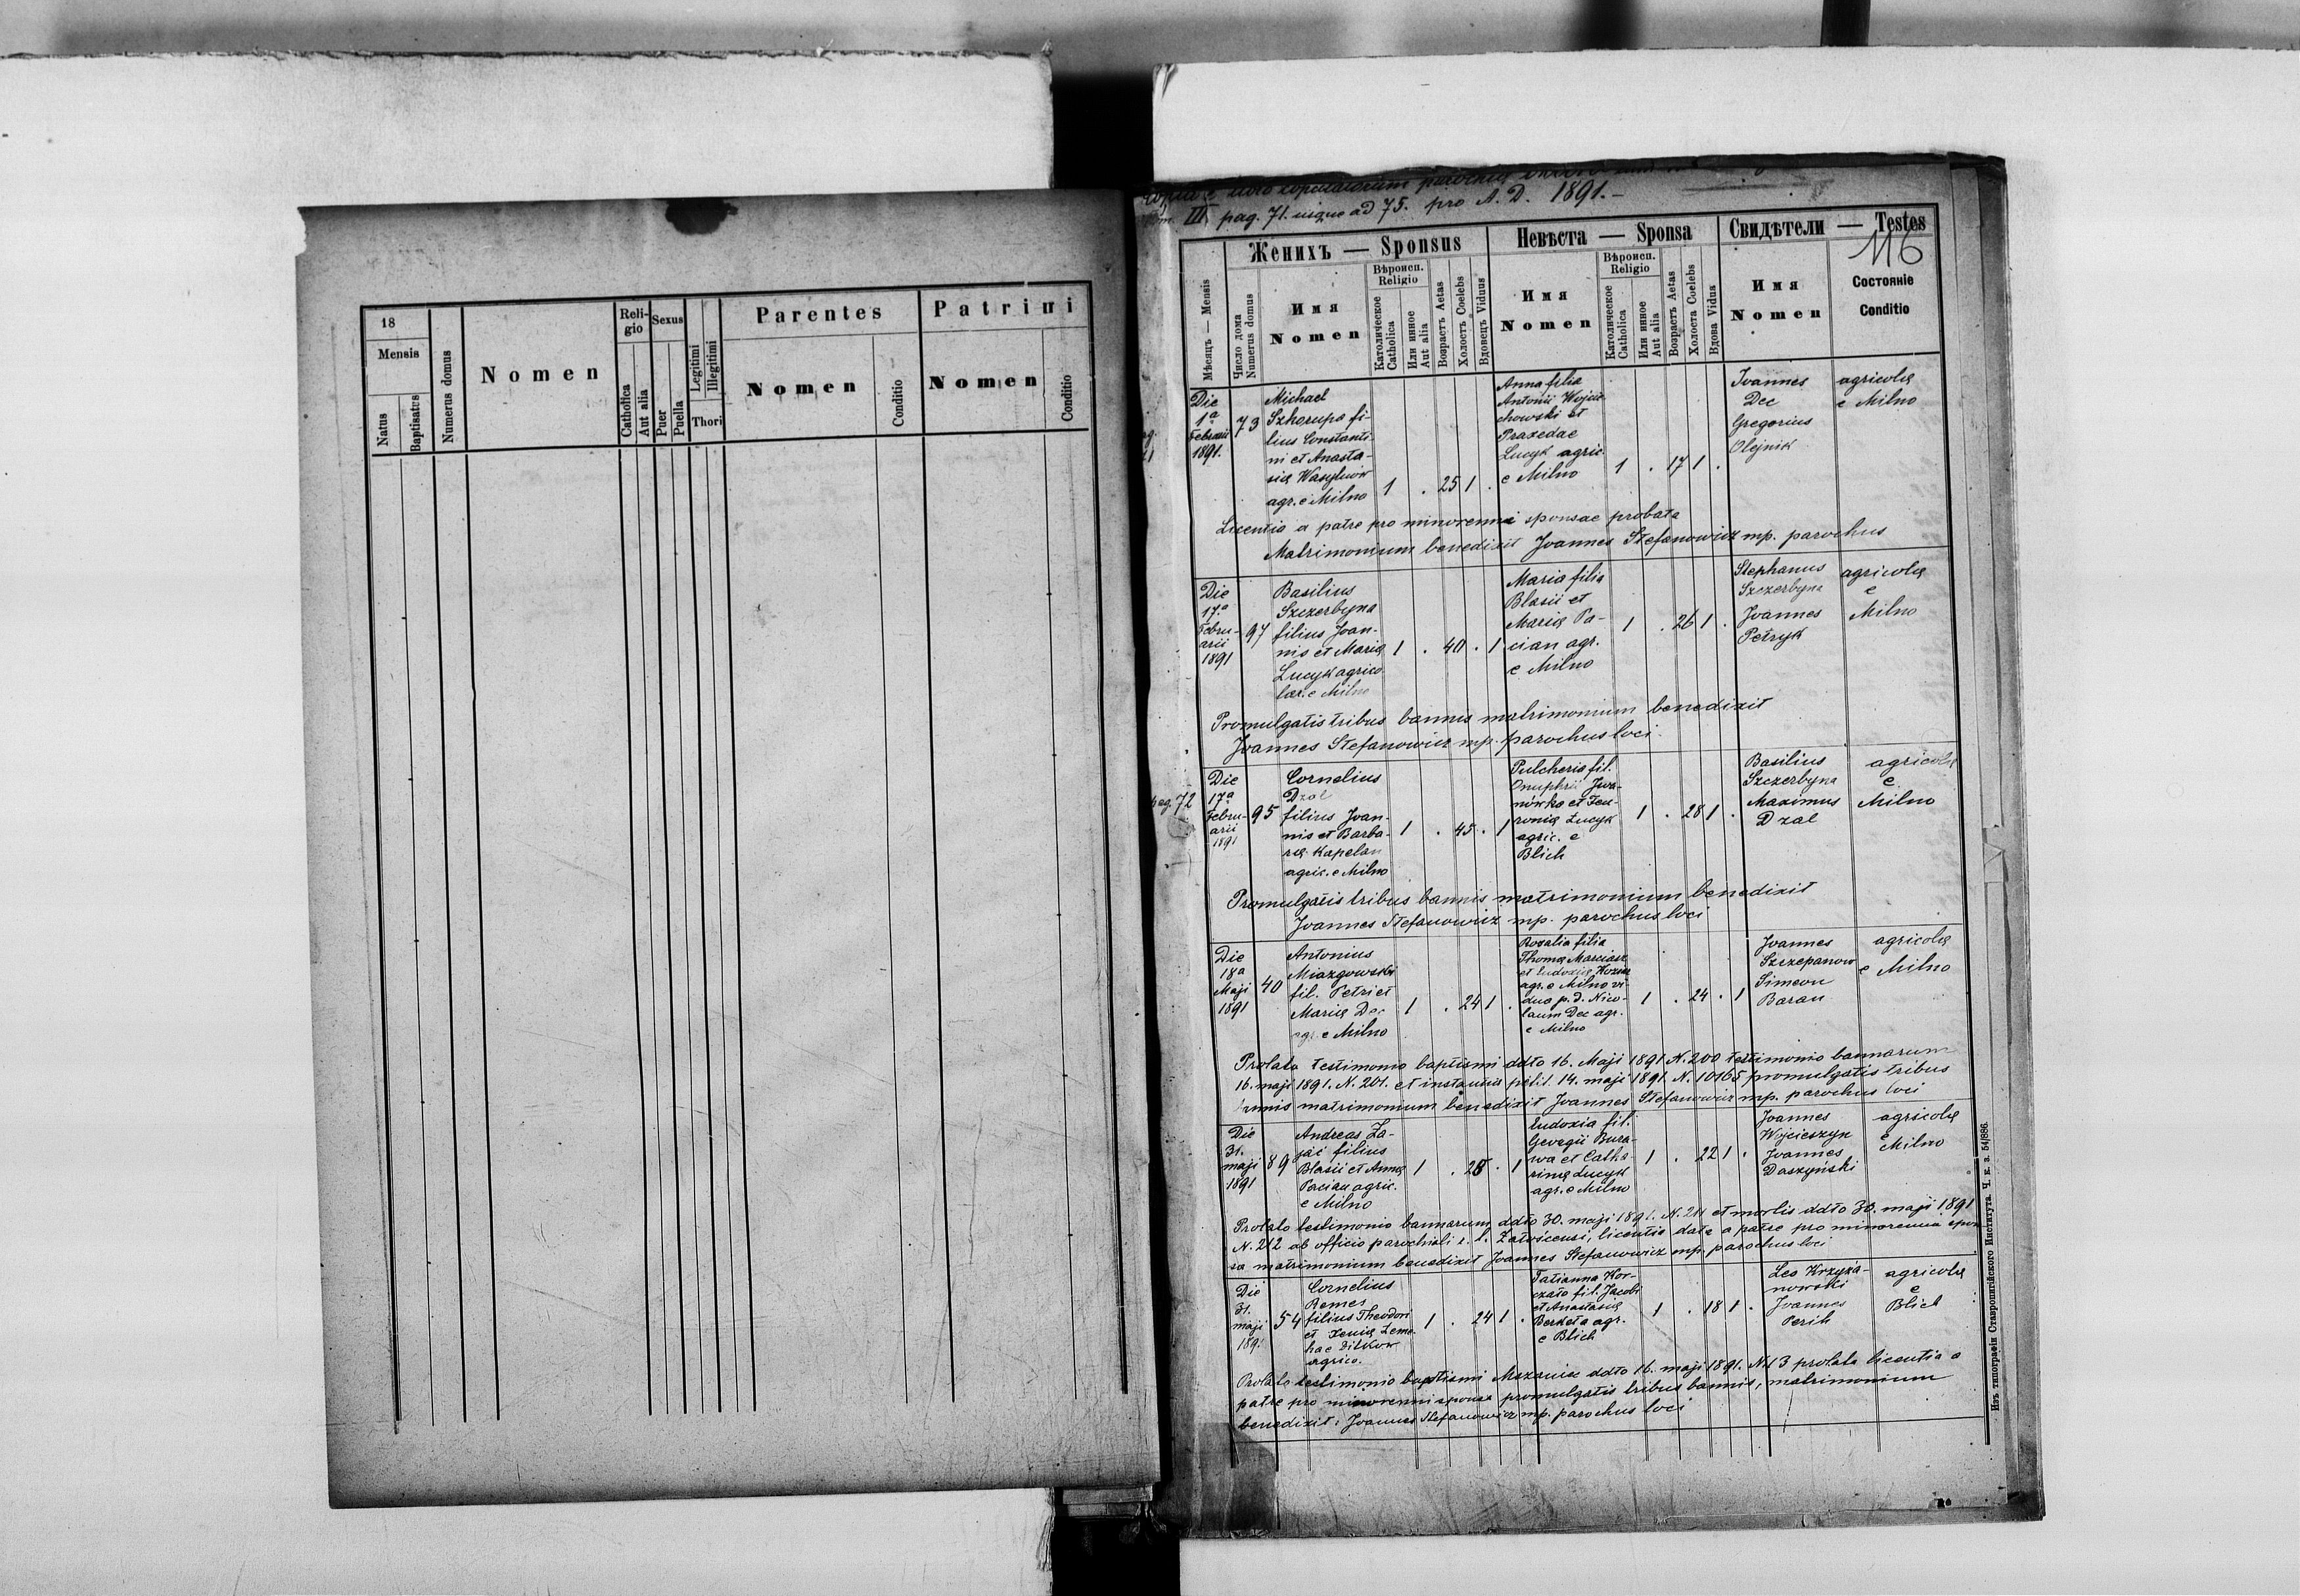 18
Mensis
Natus
Baptisatus
Numerus domus
Nomen
Reli-
gio
Catholica
Aut alia
Sexus
Puer
Puella
Legitimi
Illegitimi
Thori
Parentes
Nomen
Conditio
Patrini
Nomen
Conditio
III. pag. 71. usque ad 75. pro A. D. 1891.-
116
Мѣсяцъ — Mensis
Женихъ — Sponsus
Число дома
Numerus domus
Имя
Nomen
Вѣроисп.
Religio
Католическое
Catholica
Или инное
Aut alia
Возрастъ Aetas
Холостъ Coelebs
Вдовецъ Viduus
Невѣста — Sponsa
Имя
Nomen
Вѣроисп.
Religio
Католическое
Catholica
Или инное
Aut alia
Возрастъ Aetas
Холоста Coelebs
Вдова Vidus
Свидѣтели — Testes
Имя
Nomen
Состояніе
Conditio
Die
1ª
Februarii
1891.
73
Michael
Szkarupa fi-
lius Constanti-
ni et Anasta-
się Wasylwiów
agr. e Milno
1 . 25 1 .
Anna filia
Antonii Wojcie-
chowski et
Praxedae
Lucyk agric.
e Milno
1 . 17 1 .
Ioannes
Dec
Gregorius
Olejnik
agricolę
e Milno
Licentia a patre pro minorenni sponsae probata
Matrimonium benedixit Joannes Stefanowicz mp. parochus
Die
17.ª
Febru-
arii
1891
97
Basilius
Szczerbyna
filius Joan-
nis et Marię
Lucyk agrico
lar. e Milno
1 . 40 . 1
Maria filia
Blasii et
Marię Pa-
cian agr.
e Milno
1 . 26 1 .
Stephanus
Szczerbyna
Joannes
Petryk
agricolę
e
Milno
Promulgatis tribus bannis matrimonium benedixit
Joannes Stefanowicz mp. parochus loci.
pag. 72
Die
17ª
Febru-
arii
1891
95
Cornelius
Dzal
filius Joan-
nis et Barba-
rę Kapelan
agric. e Milno
1 . 45 . 1
Pulcheria fil.
Onuphrii Iwa-
nówka et Feu-
ronię Lucyk
agric. e
Blich
1 . 28 1 .
Basilius
Szczerbyna
Maximus
Dzal
agricolę
e
Milno
Promulgatis tribus bannis matrimonium benedixit
Joannes Stefanowicz mp. parochus loci
Die
18ª
Maji
1891
40
Antonius
Miazgowski
fil. Petri et
Marię Dec
agr. e Milno
1 . 24 1 .
Rosalia filia
Thomę Marciasz
et Eudoxię
agr. e Milno vi-
dua p. d. Nico-
laum Dec agr.
e Milno
1 . 24 . 1
Joannes
Szczepanow
Simeon
Baran
agricolę
e Milno
Prolato testimonio baptismi ddto 16. Maji 1891 N. 200 testimonio bannarum
16. maji 1891. N. 201. et instantiis 14. maji 1891. N. 10165 promulgatis tribus
bannis matrimonium benedixit Joannes Stefanowicz mp. parochus loci
Die
31.
maji
1891
89
Andreas Za-
jać filius
Blasii et Annę
Pacian agric.
e Milno
1 . 28 . 1
Eudoxia fil.
Georgii Bura-
wa et Catha-
rinę Lucyk
agr. e Milno
1 . 22 1 .
Joannes
Wojcieszyn
Joannes
Daszyński
agricolę
e
Milno
Prolato testimonio bannarum ddto 30. maji 1891. N. 211 et mortis ddto 30. maji 1891
N. 212 ab officio parochiali r. l. Załoścensi, licentia data a patre pro minorenni spon-
sa matrimonium benedixit Joannes Stefanowicz mp. parochus loci
Die
31.
maji
1891
54
Cornelius
Remes
filius Theodori
et Xenię Zeme-
hac Ditkow
agrico.
1 . 24 1 .
Tatianna Kor-
czało fil. Jacobi
et Anastasię
Berketa agr.
e Blich
1 . 18 1 .
Leo Krzyża-
nowski
Joannes
Perih
agricolę
e
Blich
Prolato testimonio baptismi ddto 16. maji 1891. N. 13 prolata licentia a
patre pro minorenni sponsa promulgatis tribus bannis, matrimonium
benedixit: Joannes Stefanowicz mp. parochus loci
Изъ типографіи Ставропигійского Института. Ч. к. а. 54/886.